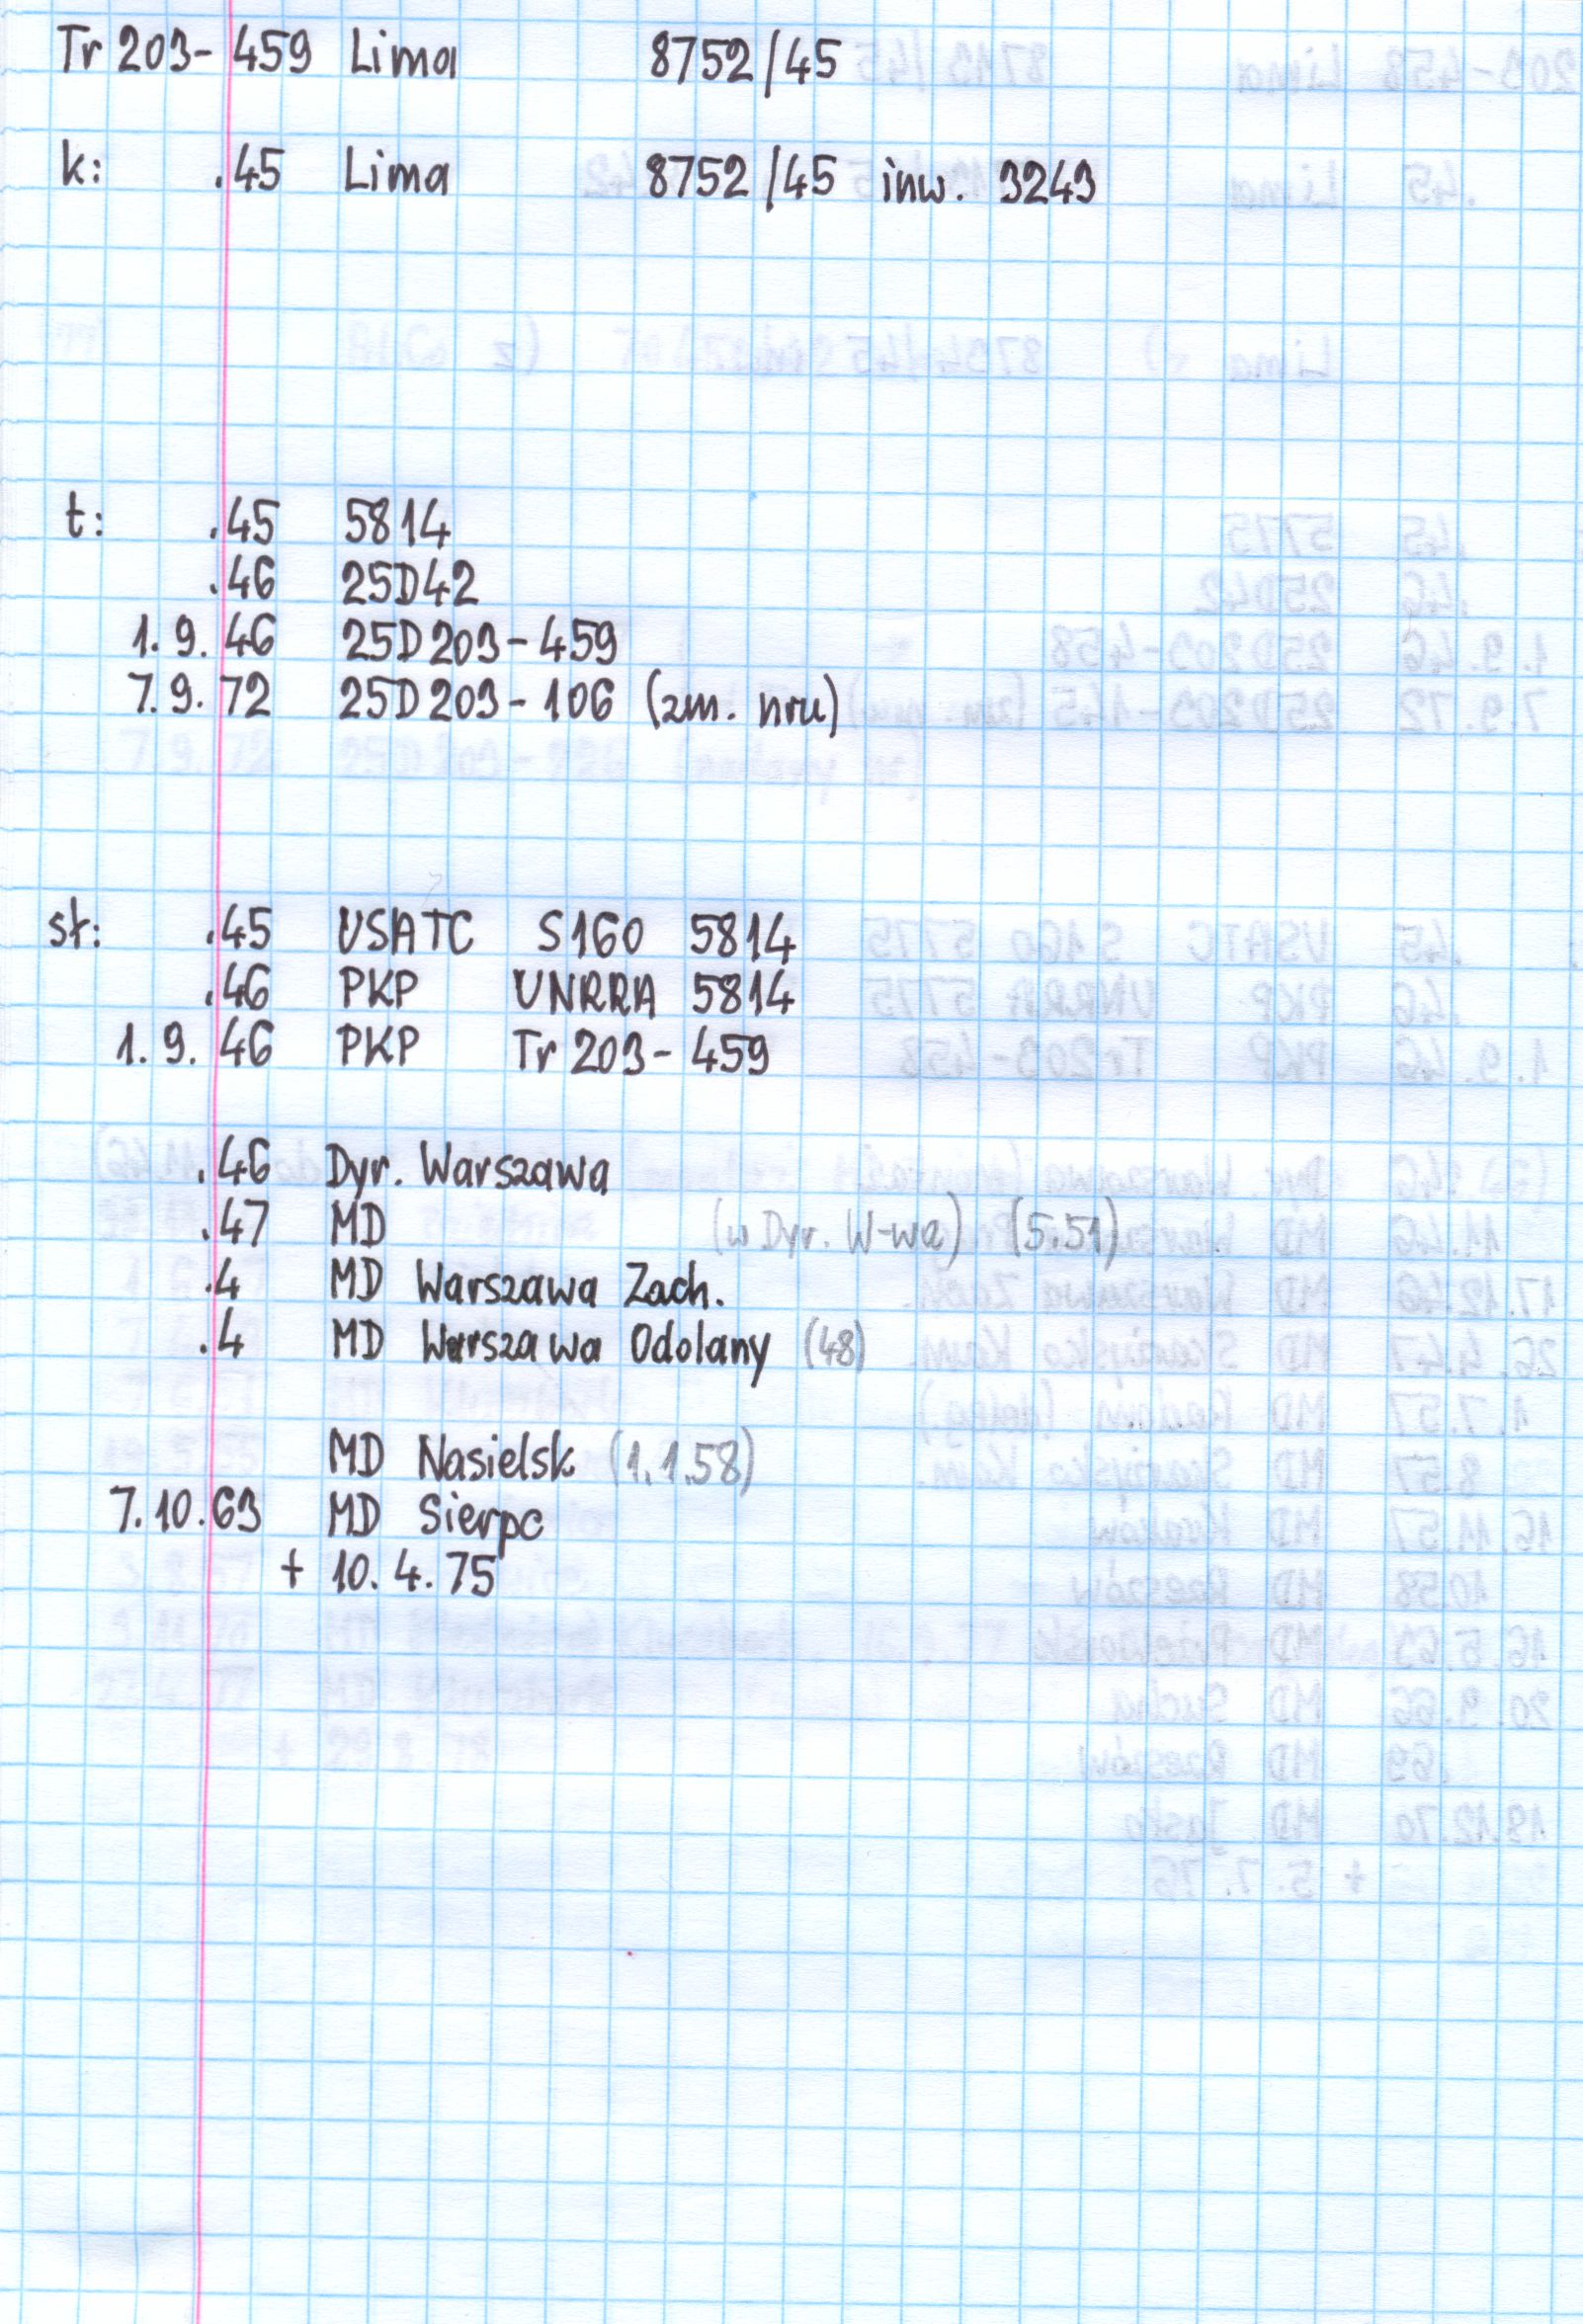 Tr 203-459 Lima 8752/45
k: .45 Lima 8752/45 inw. 3243
t: .45 5814
.46 25D42
1.9.46 25D203-459
7.9.72 25D203-106 (zm. nru)
sł: .45 USATC S160 5814
.46 PKP UNRRA 5814
1.9.46 PKP Tr 203-459
.46 Dyr. Warszawa
.47 MD (w Dyr. W-wa) (5.51)
.4 MD Warszawa Zach.
.4 MD Warszawa Odolany (48)
MD Nasielsk (1.1.58)
7.10.63 MD Sierpc
+ 10.4.75